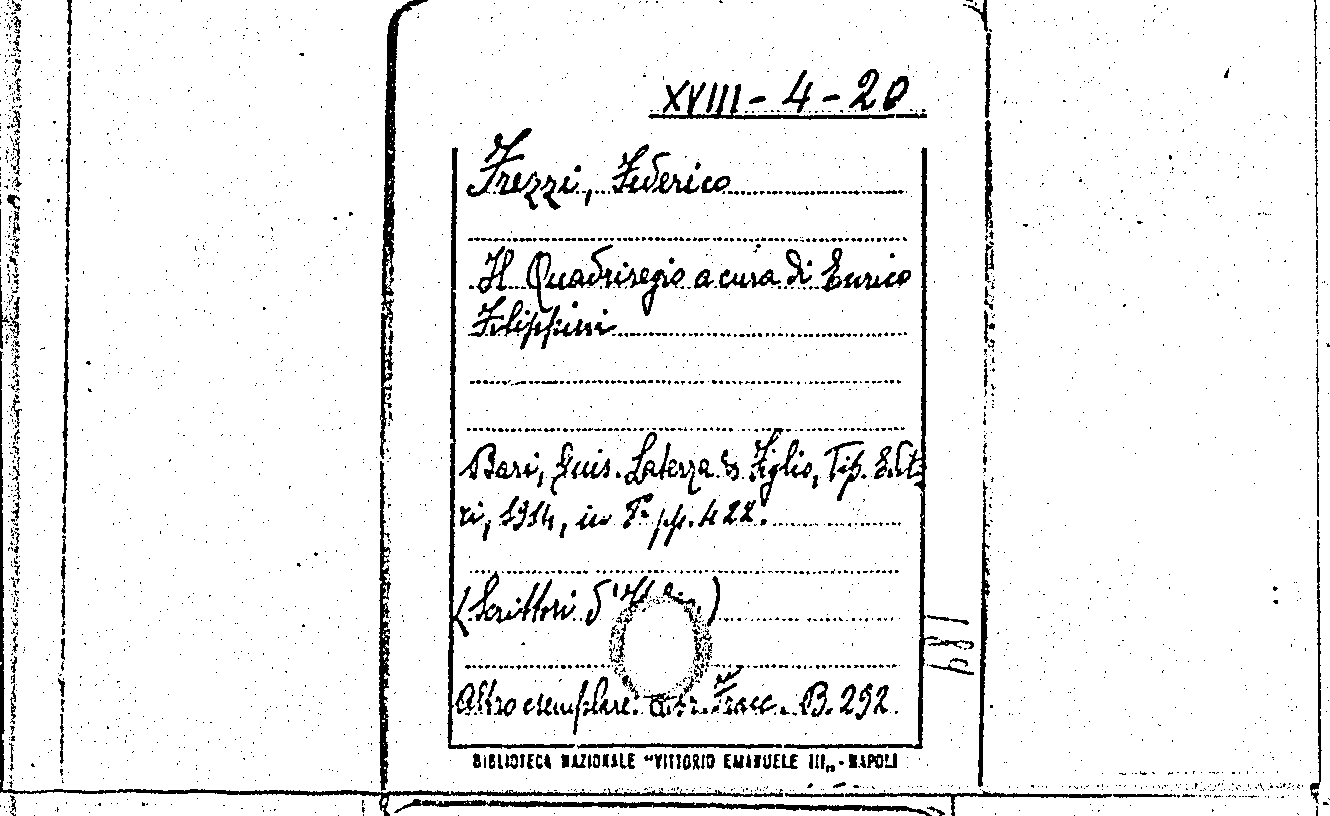 XVIII - 4 - 20
Frezzi, Federico
Il Quadriregio a cura di Enrico
Filippini
Bari, Guis. Laterza & Figlio, Tip. Edito
ri, 1914, in 8° pp. 422.
(Scrittori d'Italia)
Altro esemplare: Fracc. B. 292
BIBLIOTECA NAZIONALE "VITTORIO EMANUELE III„ - NAPOLI